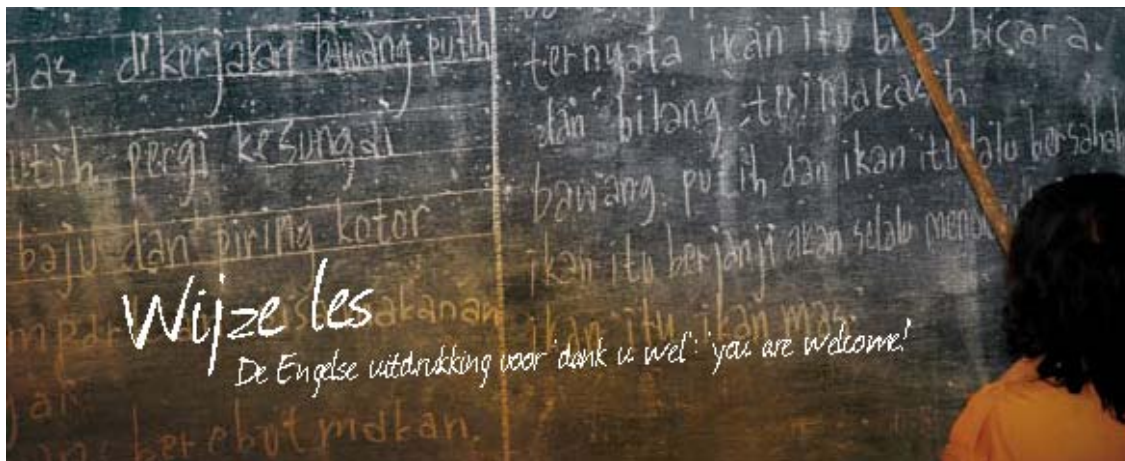 dikerjakan bawang putih
pergi kesungai
baju dan piring kotor
akanan
berebut makan.
ternyata ikan itu bisa bicara.
dan bilang terimakasih
bawang putih dan ikan itu lalu
ikan itu berjanji akan selalu
ikan itu ikan mas.
Wijze les
De Engelse uitdrukking voor 'dank u wel': 'you are welcome!'